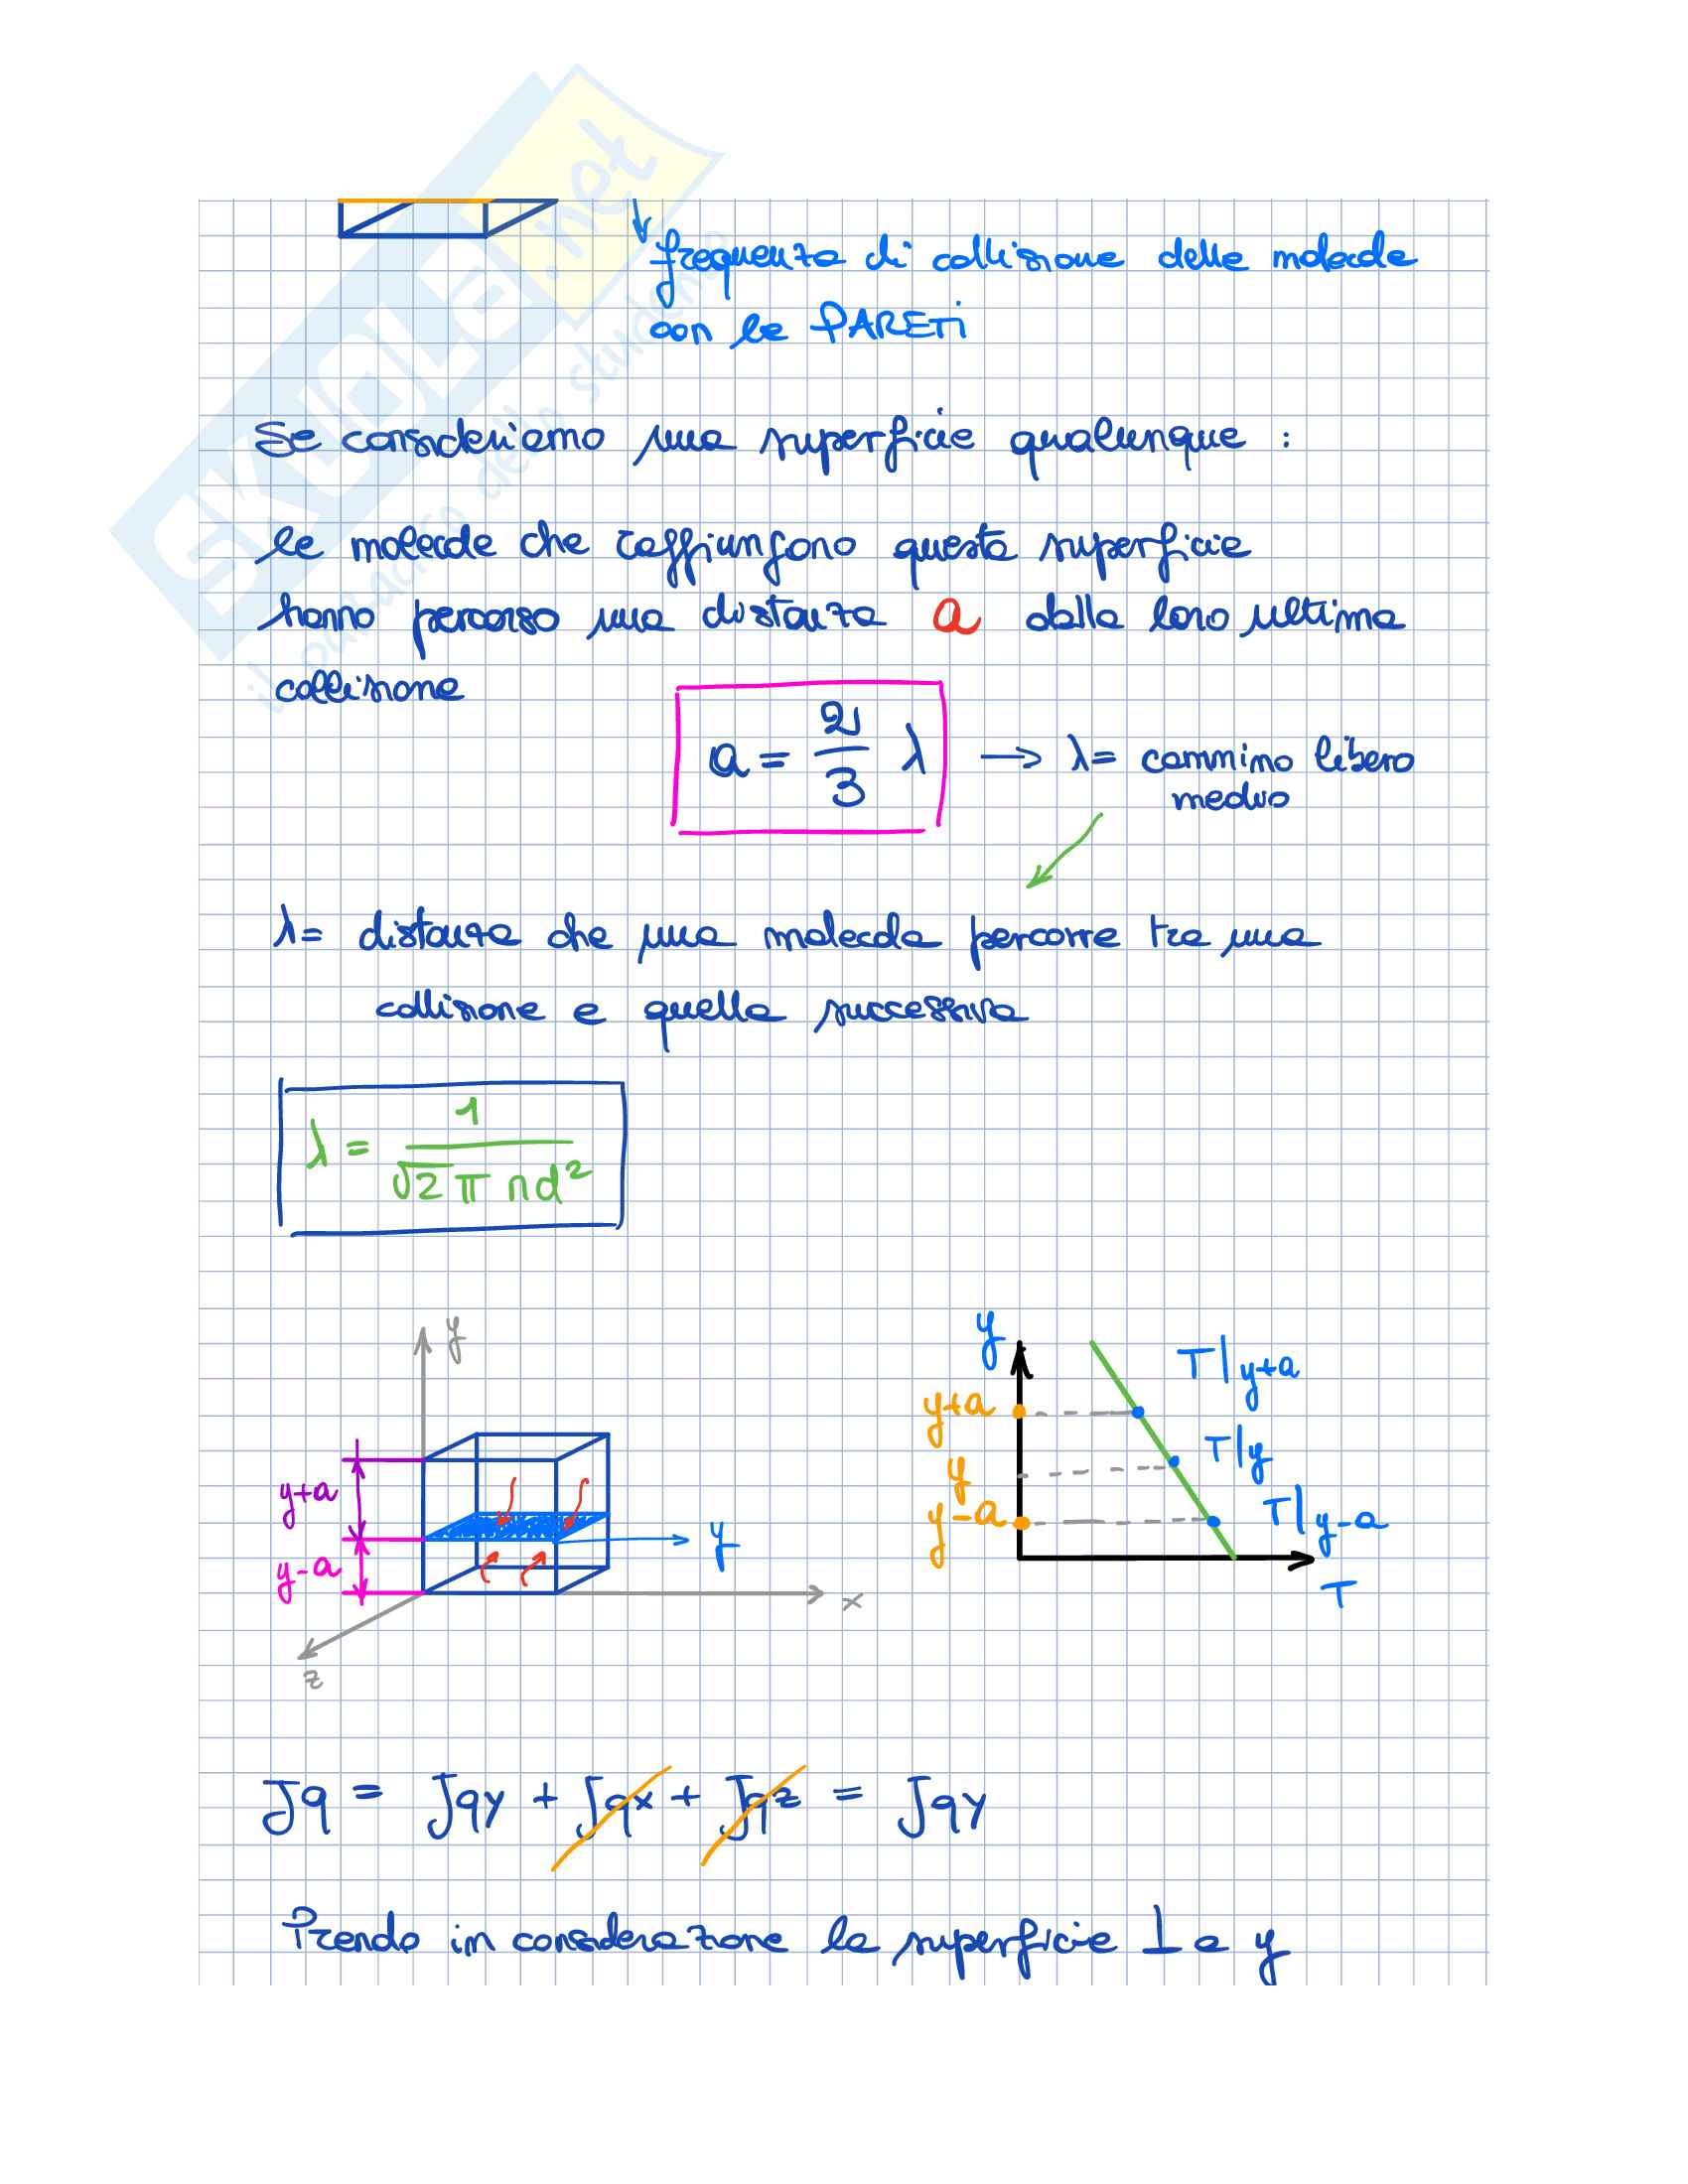 frequenza di collisione delle molecole
con le PARETi
Se consideriamo una superficie qualunque :
le molecole che raggiungono questa superficie
hanno percorso una distanza a dalla loro ultima
collisione
a = 2/3 λ → λ = cammino libero
medio
λ = distanza che una molecola percorre tra una
collisione e quella successiva
λ = 1/(√2 π nd²)
y
y+a
y-a
y
x
z
y
T|y+a
y+a
T|y
y
T|y-a
y-a
T
Jq = Jqy + Jqx + Jqz = Jqy
Prendo in considerazione la superficie ⊥ a y
SKUOLA.net
il paradiso dello studente